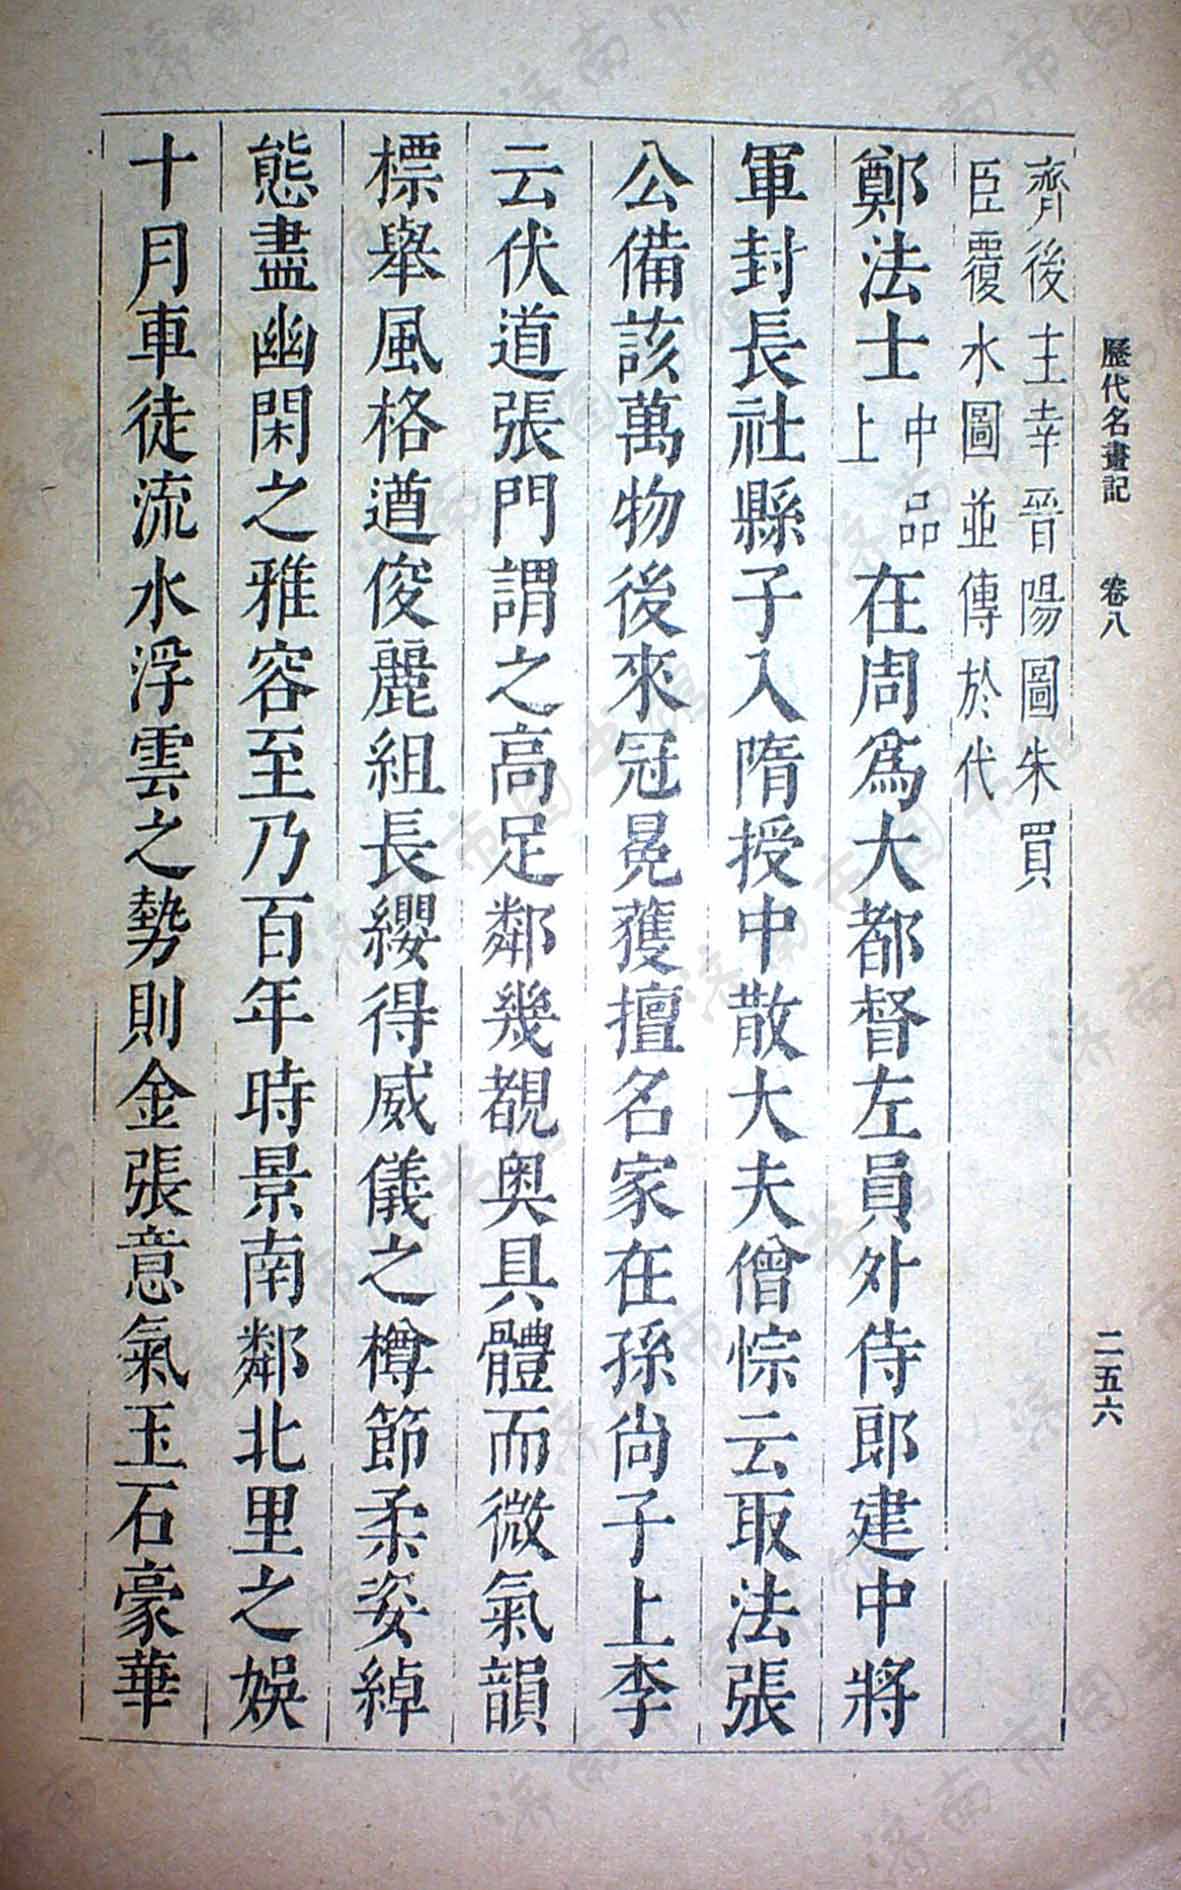 歷代名畫記 卷八 二五六
齊後主幸晉陽圖朱買
臣覆水圖並傳於代
鄭法士中品上在周爲大都督左員外侍郎建中將
軍封長社縣子入隋授中散大夫僧悰云取法張
公備該萬物後來冠冕獲擅名家在孫尚子上李
云伏道張門謂之高足鄰幾覩奥具體而微氣韻
標舉風格遒俊麗組長纓得威儀之樽節柔姿綽
態盡幽閑之雅容至乃百年時景南鄰北里之娛
十月車徒流水浮雲之勢則金張意氣玉石豪華